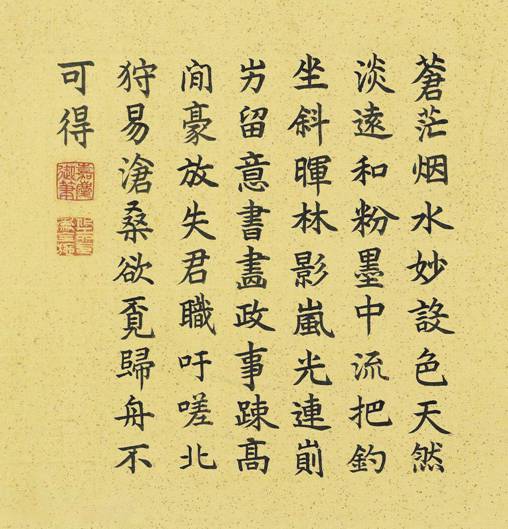 蒼茫烟水妙設色天然
淡遠和粉墨中流把釣
坐斜暉林影嵐光連崱
屴留意書畫政事踈髙
閒豪放失君職吁嗟北
狩易滄桑欲覔歸舟不
可得
嘉慶
御筆